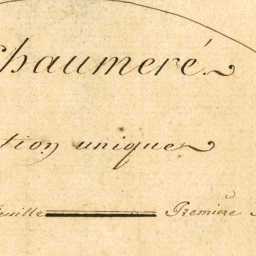 Chaumeré
tion unique
euille Première